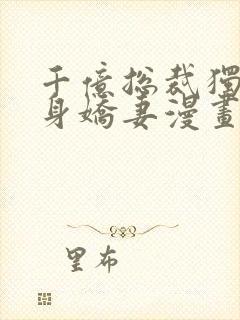 千億總裁獨
身嬌妻漫畫
里布